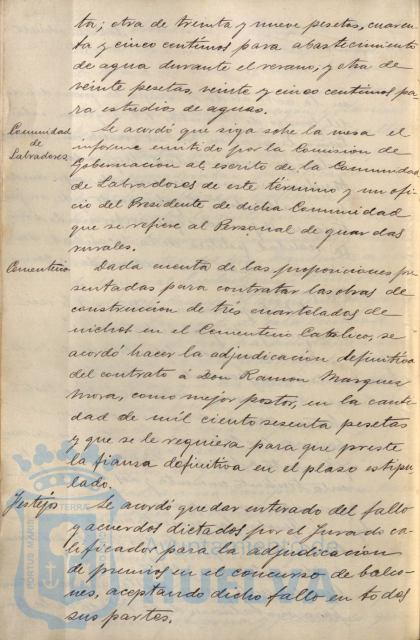 ta; otra de treinta y nueve pesetas, cuaren-
ta y cinco centimos para abastecimiento
de agua durante el verano, y otra de
veinte pesetas, veinte y cinco centimos pa-
ra estudios de aguas.
Comunidad
de
Labradores
Se acordó que siga sobre la mesa el
informe emitido por la Comision de
Gobernación al escrito de la Comunidad
de Labradores de este término y un ofi-
cio del Presidente de dicha Comunidad
que se refiere al Personal de guardas
rurales.
Cementerio
Dada cuenta de las proposiciones pre-
sentadas para contratar las obras de
construcción de tres cuartelados de
nichos en el Cementerio Catolico, se
acordó hacer la adjudicacion definitiva
del contrato á Don Ramon Marquez
Mora, como mejor postor, en la canti-
dad de mil ciento sesenta pesetas
y que se le requiera para que preste
la fianza definitiva en el plazo estipu-
lado.
Festejos
Se acordó quedar enterado del fallo
y acuerdos dictados por el Jurado ca-
lificador para la adjudicacion
de premios en el concurso de balco-
nes, aceptando dicho fallo en todos
sus partes.
PORTUS MARIS
TERRAE
Ayuntamiento de
HUELVA